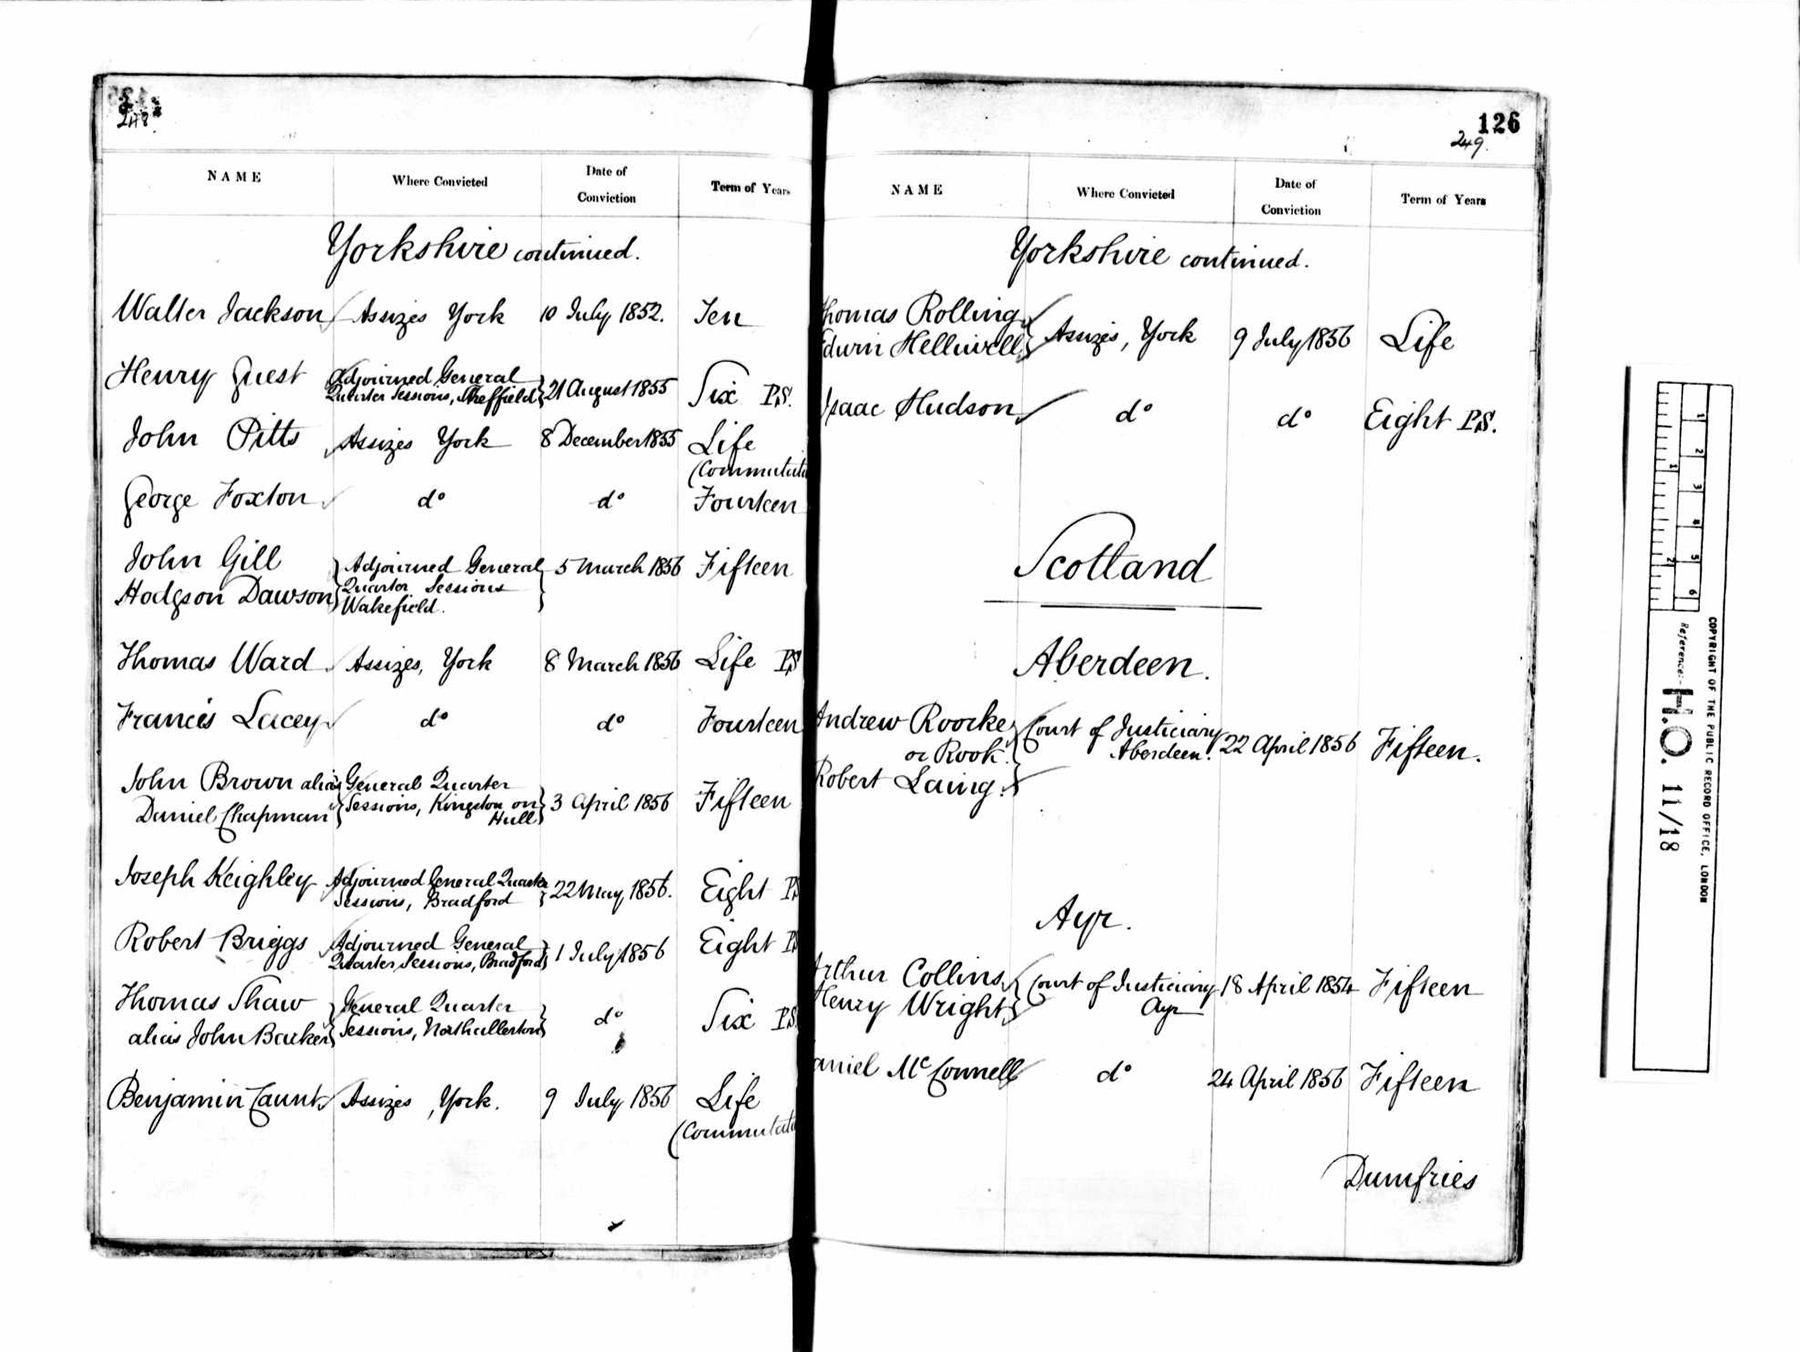 248.
NAME Where Convicted Date of Conviction Term of Years
Yorkshire continued.
Walter Jackson Assizes York 10 July 1852. Ten
Henry Guest Adjourned General
Quarter Sessions, Sheffield 21 August 1855 Six P.S.
John Pitts Assizes York 8 December 1855 Life
(Commutat
George Foxton do do Fourteen
John Gill Adjourned General 5 March 1856 Fifteen
Hodgson Dawson Quarter Sessions
Wakefield.
Thomas Ward Assizes, York 8 March 1856 Life PS
Francis Lacey do do Fourteen
John Brown alias General Quarter
Daniel Chapman Sessions, Kingston on 3 April 1856 Fifteen
Hull
Joseph Keighley Adjourned General Quarter
Sessions, Bradford 22 May 1856. Eight PS
Robert Briggs Adjourned General
Quarter Sessions, Bradford 1 July 1856 Eight P
Thomas Shaw General Quarter
alias John Barker Sessions, Northallerton do Six P.S
Benjamin Caunt Assizes, York. 9 July 1856 Life
(Commutat
126
249.
NAME Where Convicted Date of Conviction Term of Years
Yorkshire continued.
Thomas Rolling
Edwin Helliwell Assizes, York 9 July 1856 Life
Isaac Hudson do do Eight P.S.
Scotland
Aberdeen.
Andrew Roorke Court of Justiciary
or Rook. Aberdeen. 22 April 1856 Fifteen.
Robert Laing.
Ayr.
Arthur Collins Court of Justiciary 18 April 1854 Fifteen
Henry Wright Ayr
aniel McConnell do 24 April 1856 Fifteen
Dumfries
1 2 3 4 5 6
1 2
Reference:-
H.O. 11/18
COPYRIGHT OF THE PUBLIC RECORD OFFICE, LONDON